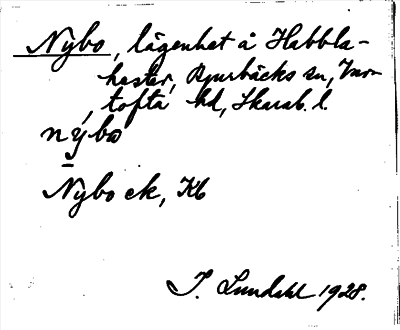 Nybo, lägenhet å Habbla-
hester, Bjurbäcks sn, Mo-
tofta hd, Skarab. l.
nýbo
Nybo ek, Kb
I. Lundahl 1928.